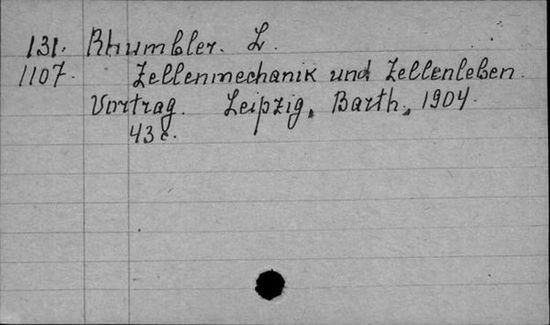 131. Rhumbler. L.
1107. Zellenmechanik und Zellenleben.
Vortrag. Leipzig, Barth, 1904.
43 c.